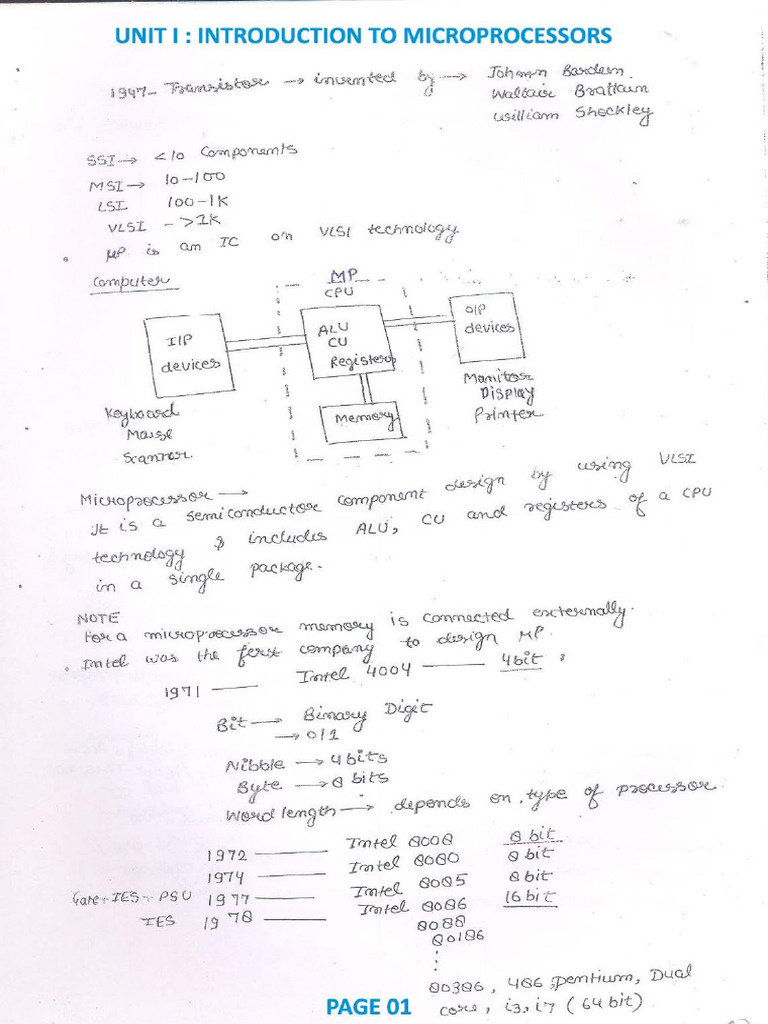 UNIT I : INTRODUCTION TO MICROPROCESSORS
1947- Transistor → invented by → Johawn Bardeen.
Waltair Brattain
William Shockley
SSI → <10 Components
MSI → 10-100
LSI 100-1K
VLSI ->1K
• μP is an IC on VLSI technology
Computer
MP
CPU
I/P
devices
ALU
CU
Registers
O/P
devices
Memory
Keyboard
Mouse
Scanner
Monitor
Display
Printer
Microprocessor →
It is a semiconductor component design by using VLSI
technology & includes ALU, CU and registers of a CPU
in a single package.
NOTE
For a microprocessor memory is connected externally.
• Intel was the first company to design MP.
1971 — Intel 4004 — 4bit
Bit → Binary Digit
→ 0/1
Nibble → 4bits
Byte → 8 bits
Word length → depends on type of processor
1972 — Intel 8008 8 bit
1974 — Intel 8080 8 bit
Gate + IES + PSU 1977 — Intel 8085 8bit
IES 1978 — Intel 8086 16bit
8088
80186
80386, 486, pentium, Dual
core, i3, i7 (64bit)
PAGE 01